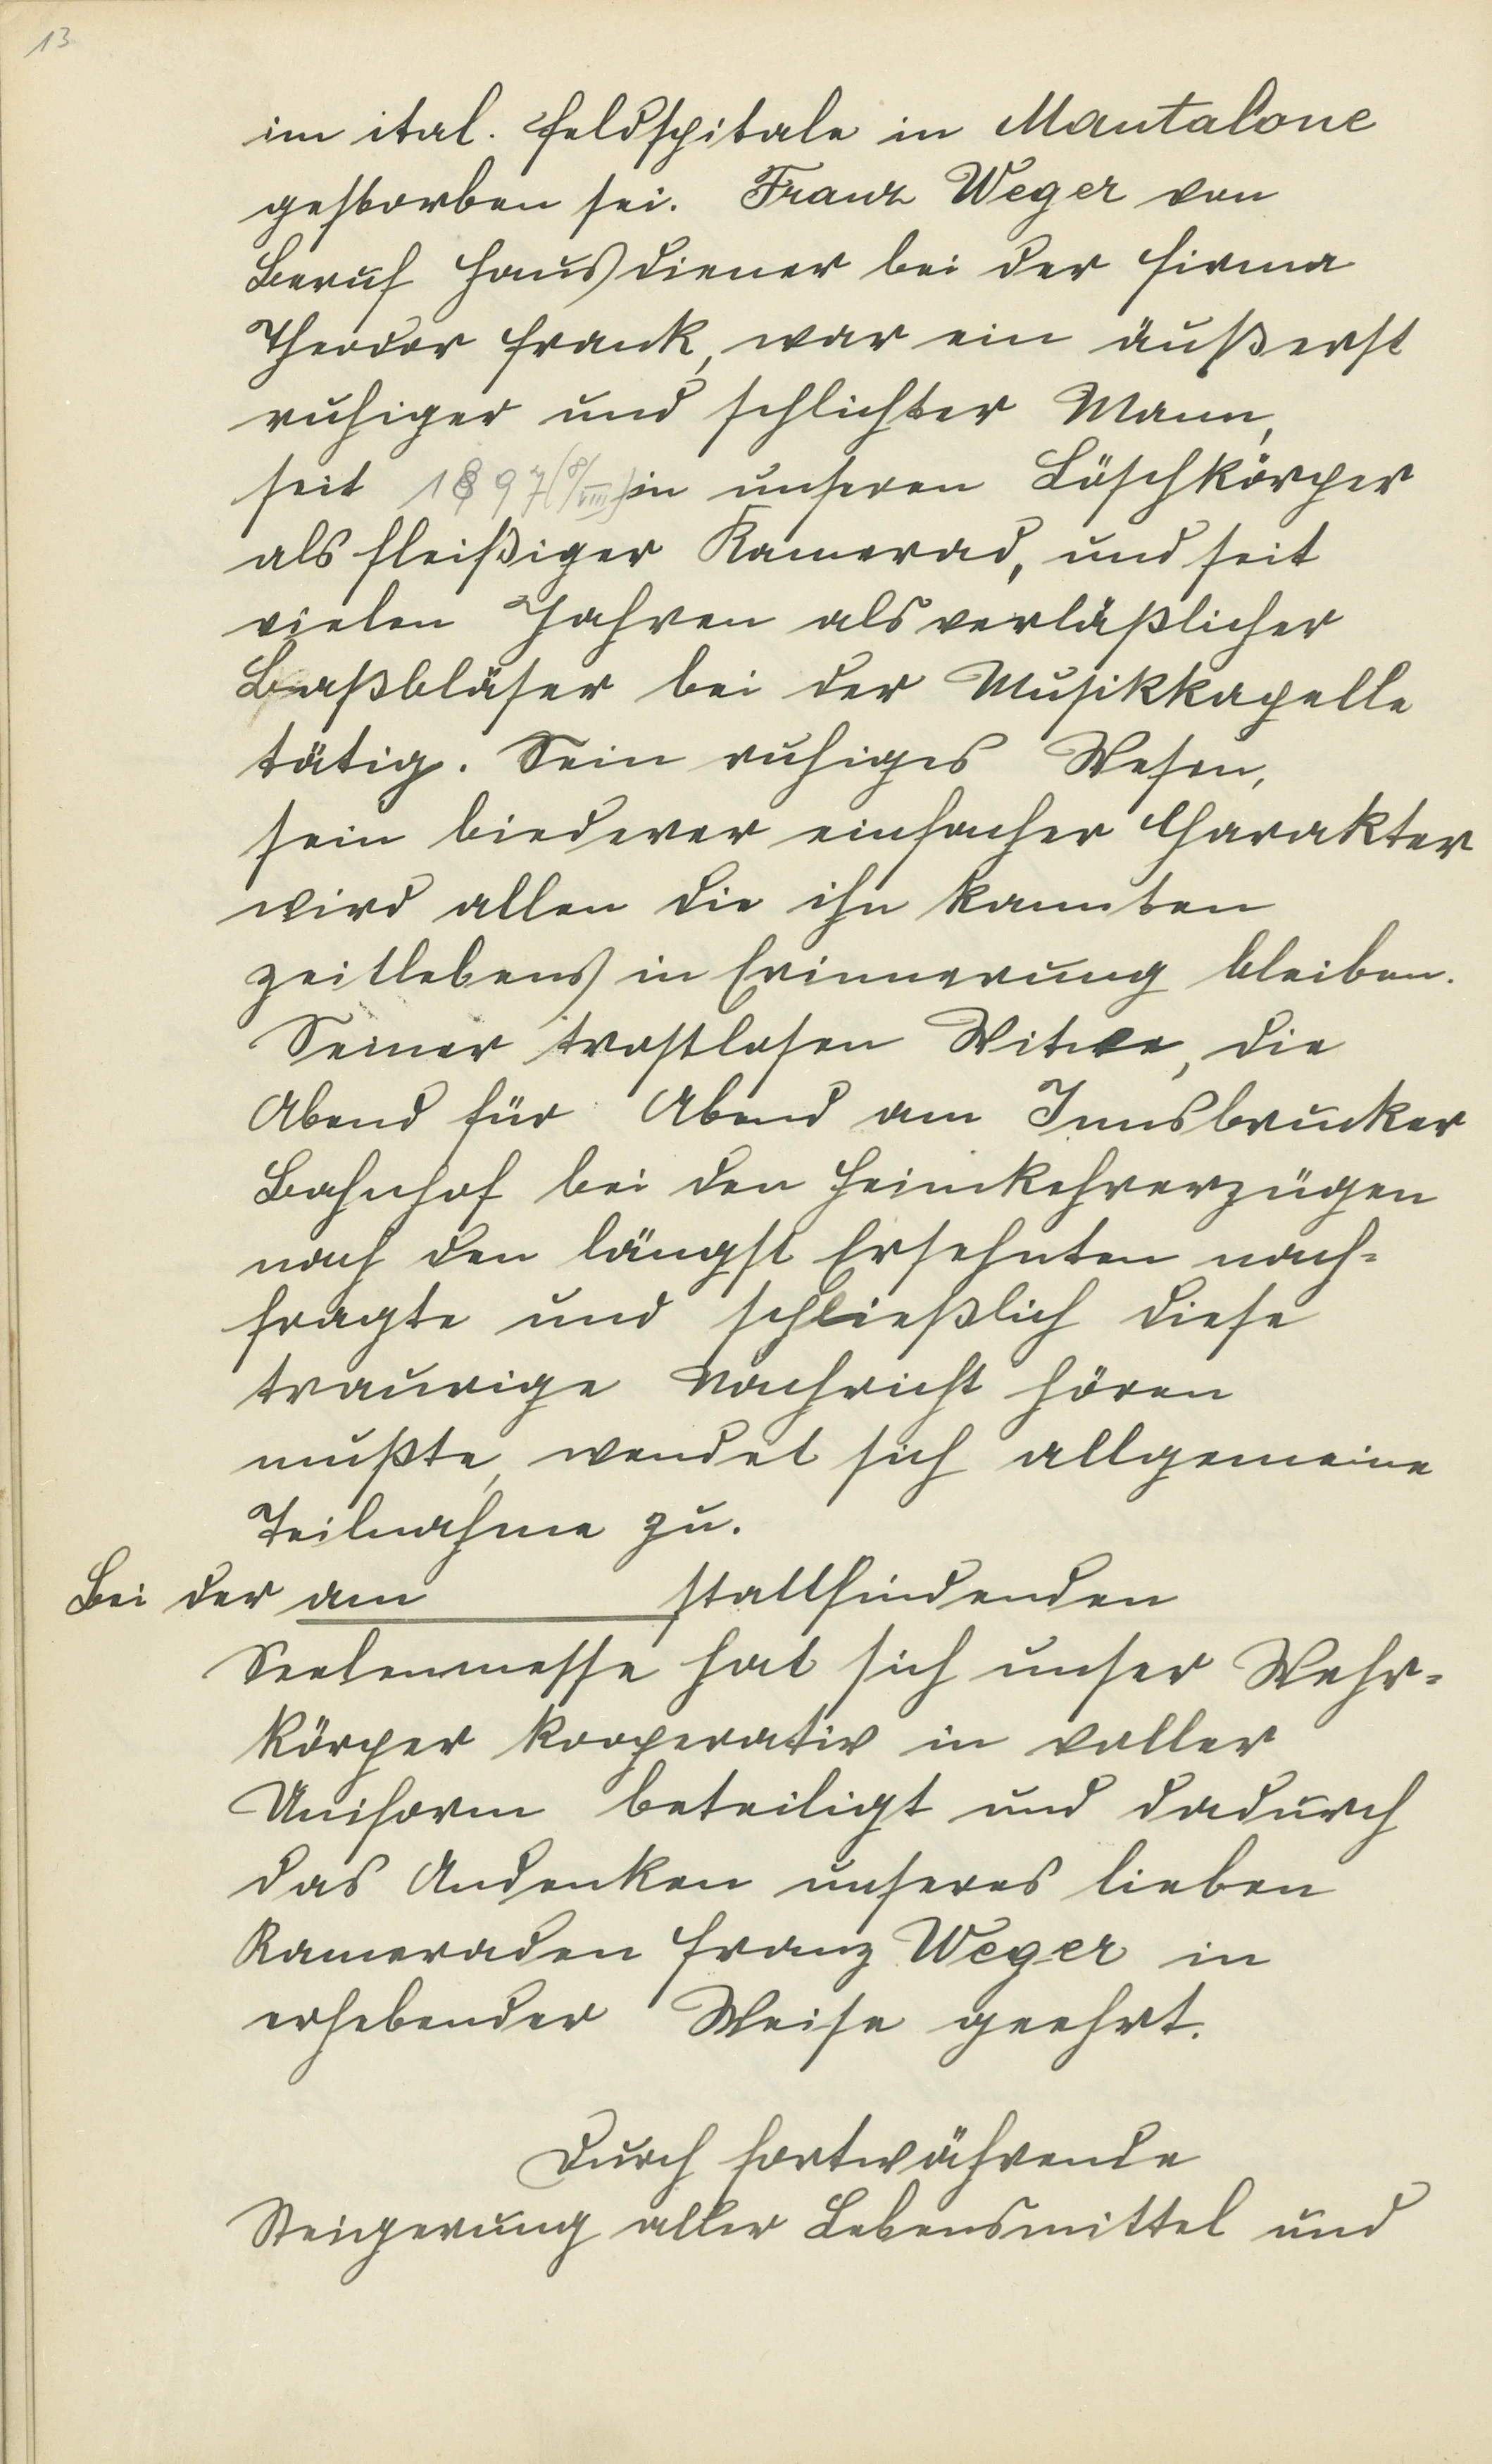 13
im ital. Feldspitale in Mantalone
gestorben sei. Franz Weger von
Beruf Hausdiener bei der Firma
Theodor Frank, war ein äußerst
ruhiger und schlichter Mann,
seit 1897 (8/VIII) in unseren Löschkörper
als fleißiger Kamerad, und seit
vielen Jahren als verläßlicher
Baßbläser bei der Musikkapelle
tätig. Sein ruhiges Wesen,
sein biederer einfacher Charakter
wird allen die ihn kannten
zeitlebens in Erinnerung bleiben.
Seiner trostlosen Witwe, die
Abend für Abend am Innsbrucker
Bahnhof bei den Heimkehrerzügen
nach den längst Ersehnten nach-
fragte und schließlich diese
traurige Nachricht hören
mußte, wendet sich allgemeine
Teilnahme zu.
Bei der am stattfindenden
Seelenmesse hat sich unser Wehr-
körper kooperativ in voller
Uniform beteiligt und dadurch
das Andenken unseres lieben
Kameraden Franz Weger in
erhebender Weise geehrt.
Durch fortwährende
Steigerung aller Lebensmittel und